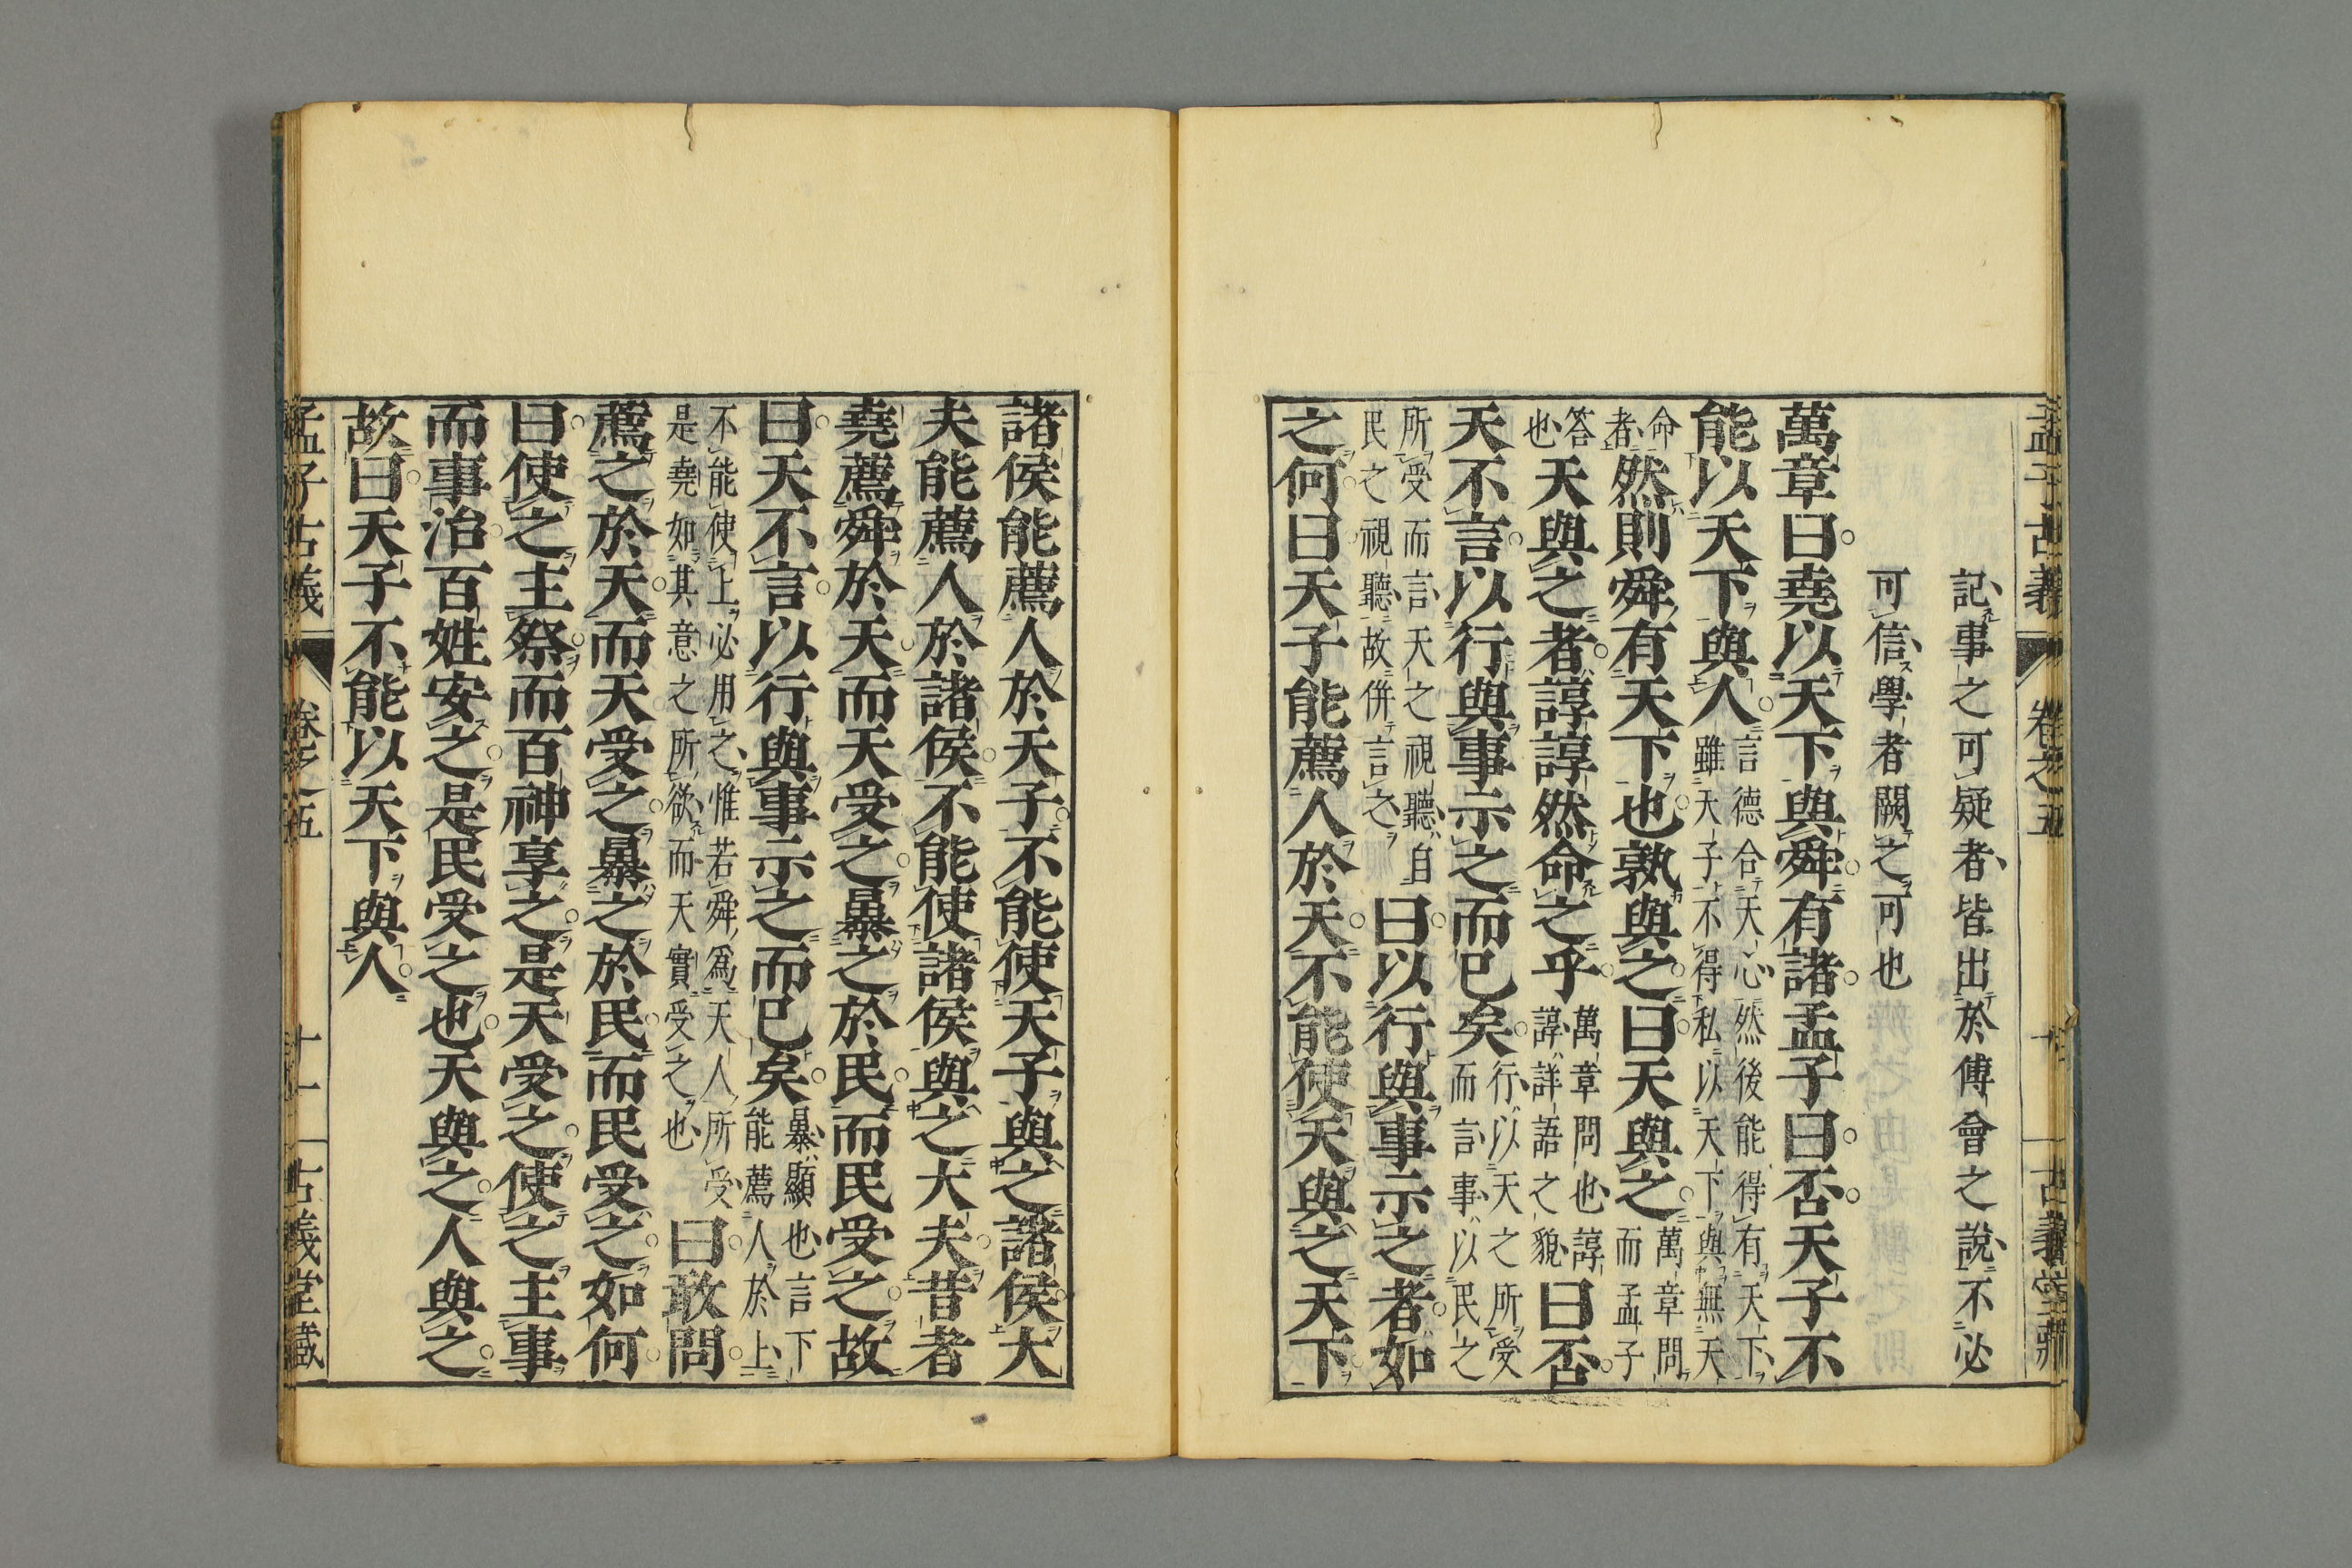 孟子古義 卷之五 十 古義堂藏
記事之可疑者皆出於傅會之說不必
可信學者闕之可也
萬章曰堯以天下與舜有諸孟子曰否天子不
能以天下與人言德合天心然後能得有天下雖天子不得私以天下與無天
命者然則舜有天下也孰與之曰天與之萬章問而孟子
答也天與之者諄諄然命之乎萬章問也諄諄詳語之貌曰否
天不言以行與事示之而已矣行以天之所受而言事以民之
所受而言天之視聽自民之視聽故併言之曰以行與事示之者如
之何曰天子能薦人於天不能使天與之天下
諸侯能薦人於天子不能使天子與之諸侯大
夫能薦人於諸侯不能使諸侯與之大夫昔者
堯薦舜於天而天受之暴之於民而民受之故
曰天不言以行與事示之而已矣暴顯也言下能薦人於上
不能使上必用之惟若舜爲天人所受是堯如其意之所欲而天實受之也曰敢問
薦之於天而天受之暴之於民而民受之如何
曰使之主祭而百神享之是天受之使之主事
而事治百姓安之是民受之也天與之人與之
故曰天子不能以天下與人
孟子古義 卷之五 十一 古義堂藏